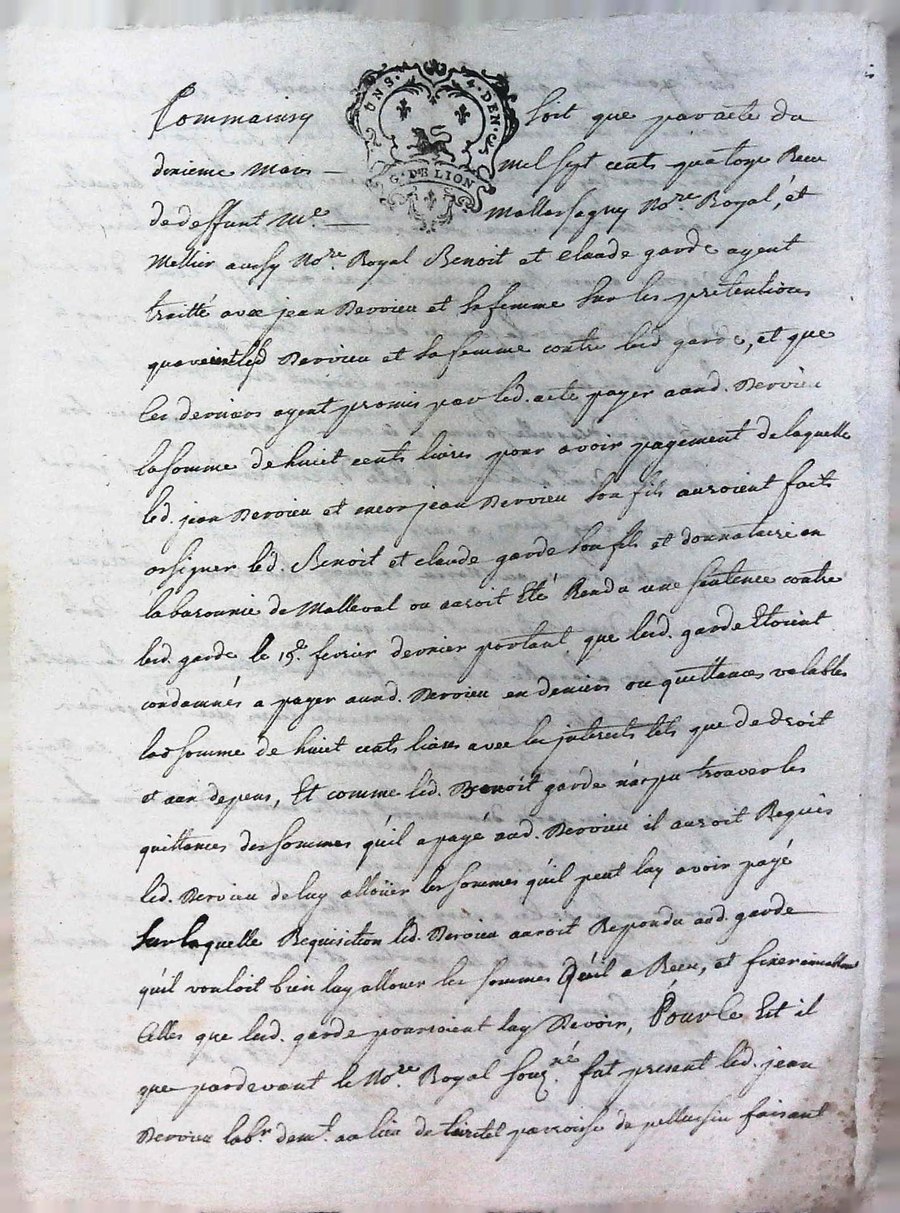 Comm'ainsy soit que par acte du
UN S. 4. DEN.
G. DE LION
deuxieme Mars mil sept cents quatorze Receu
de deffunt Me. Mallassagny No.re Royal, et
Mellier aussy No.re Royal Benoit et claude garde ayent
traitté avec jean Dervieu et sa femme sur les pretentions
qu'avoient led Dervieu et sa femme contre lesd garde, et que
les derniers ayent promis par led. acte payer aud. Dervieu
la somme de huict cents livres pour avoir payement de laquelle
led. jean Dervieu et encor jean Dervieu son fils auroient faits
assigner led. Benoit et claude garde son fils et donnataire en
la baronnie de Malleval ou auroit Eté Rendu une sentence contre
lesd. garde le 15e. fevrier dernier portant que lesd. garde Etoient
condamnés a payer aud. Dervieu en deniers ou quittances valables
lad somme de huict cents livres avec les interests tels que de droit
et aux depens, Et comme led. Benoit garde n'a pu trouver les
quittances des sommes qu'il a payé aud. Dervieu il auroit Requis
led. Dervieu de luy alloüer les sommes qu'il peut luy avoir payé
sur laquelle Requisition led. Dervieu auroit Repondu aud. garde
qu'il vouloit bien luy allouer les sommes qu'il a Receu, et fixer
celles que lesd. garde pourroient luy Devoir, Pour Ce Est il
que pardevant le No.re Royal souz.né fut present led. jean
Dervieu lab.r dem.t au lieu de parroisse de pellussin faisant